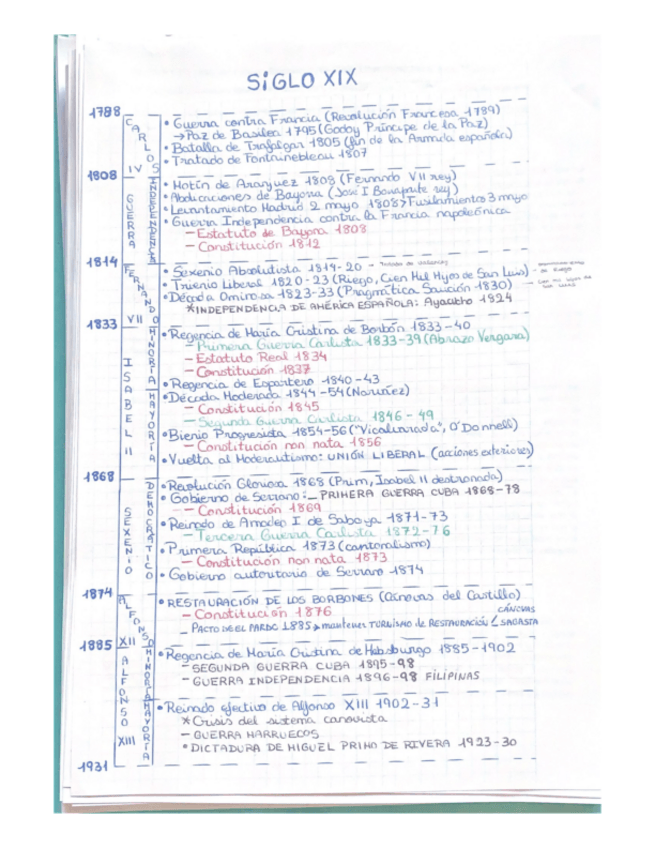 SIGLO XIX
1788
CARLOS IV
• Guerra contra Francia (Revolución Francesa 1789)
→ Paz de Basilea 1795 (Godoy Príncipe de la Paz)
• Batalla de Trafalgar 1805 (fin de la Armada española)
• Tratado de Fontainebleau 1807
1808
GUERRA INDEPENDENCIA
• Motín de Aranjuez 1808 (Fernando VII rey)
• Abdicaciones de Bayona (José I Bonaparte rey)
• Levantamiento Madrid 2 mayo 1808 > Fusilamientos 3 mayo
• Guerra Independencia contra la Francia napoleónica
- Estatuto de Bayona 1808
- Constitución 1812
1814
FERNANDO VII
• Sexenio Absolutista 1814-20
• Trienio Liberal 1820-23 (Riego, Cien Mil Hijos de San Luis)
• Década Ominosa 1823-33 (Pragmática Sanción 1830)
* INDEPENDENCIA DE AMÉRICA ESPAÑOLA: Ayacucho 1824
1833
ISABEL II
MINORÍA
MAYORÍA
• Regencia de María Cristina de Borbón 1833-40
- Primera Guerra Carlista 1833-39 (Abrazo Vergara)
- Estatuto Real 1834
- Constitución 1837
• Regencia de Espartero 1840-43
• Década Moderada 1844-54 (Narváez)
- Constitución 1845
- Segunda Guerra Carlista 1846-49
• Bienio Progresista 1854-56 ("Vicalvarada", O'Donnell)
- Constitución non nata 1856
• Vuelta al Moderantismo: UNIÓN LIBERAL (acciones exteriores)
1868
SEXENIO DEMOCRÁTICO
• Revolución Gloriosa 1868 (Prim, Isabel II destronada)
• Gobierno de Serrano: - PRIMERA GUERRA CUBA 1868-78
- Constitución 1869
• Reinado de Amadeo I de Saboya 1871-73
- Tercera Guerra Carlista 1872-76
• Primera República 1873 (cantonalismo)
- Constitución non nata 1873
• Gobierno autoritario de Serrano 1874
1874
ALFONSO XII
• RESTAURACIÓN DE LOS BORBONES (Cánovas del Castillo)
- Constitución 1876
- PACTO DE EL PARDO 1885 > mantener TURNISMO de RESTAURACIÓN < CÁNOVAS SAGASTA
1885
ALFONSO XIII
MINORÍA
MAYORÍA
• Regencia de María Cristina de Habsburgo 1885-1902
- SEGUNDA GUERRA CUBA 1895-98
- GUERRA INDEPENDENCIA 1896-98 FILIPINAS
• Reinado efectivo de Alfonso XIII 1902-31
* Crisis del sistema canovista
- GUERRA MARRUECOS
• DICTADURA DE MIGUEL PRIMO DE RIVERA 1923-30
1931